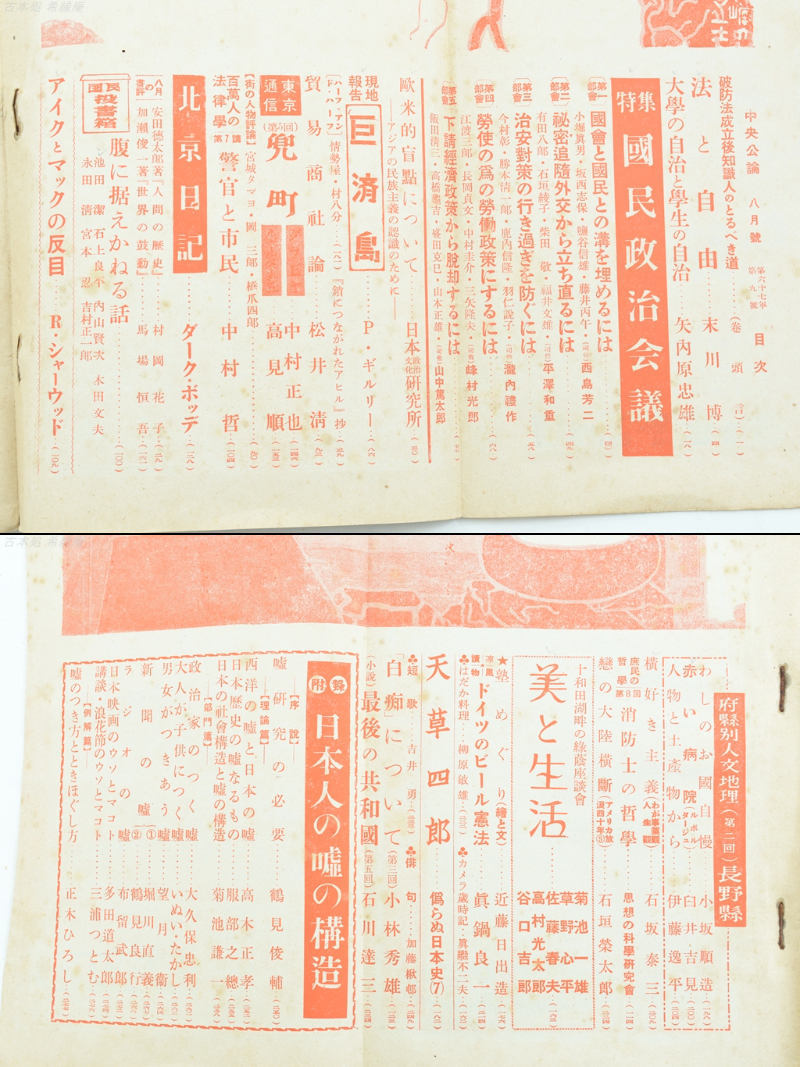 中央公論 八月號 第六十七年 第九號 目次
破防法成立後知識人のとるべき道……(卷頭言)…(一)
法と自由…末川博…(四)
大學の自治と學生の自治 矢內原忠雄
特集 國民政治会議
第一部會 國會と國民との溝を埋めるには
小堀眞男・坂西志保・鹽谷信雄・藤井丙午・(司会)西島芳二
第二部會 祕密追隨外交から立ち直るには
有田八郎・石垣綾子・柴田敬・福井文雄・(司会)平澤和重
第三部會 治安對策の行き過ぎを防ぐには
今村彰・勝本清一郎・鹿內信隆・羽仁說子・(司会)瀧內禮作
第四部會 勞使の爲の勞働政策にするには
江波三郎・長岡貞文・中村圭介・三矢隆夫・(司会)峰村光郎
第五部會 下請經濟政策から脫却するには
飯田清三・高橋龜吉・疲田克巳・山本正雄・(司会)山中篤太郎
歐米的盲點について
――アジアの民族主義の認識のために――
日本政治文化硏究所
現地報告 巨済島 P・ギルリー
〔ハーフ・アンド・ハーフ〕 情勢屋・村八分…『鎖につながれたアヒル』抄
貿易商社論 松井清
東京通信(第六回) 兜町 中村正也 高見順
〔街の人物評論〕 宮城タマヨ・岡三郎・橋爪四郎
百萬人の法律學 第7講 警官と市民 中村哲
北京日記 ダーク・ボッデ
八月の書評 安田德太郎著『人間の歴史』 村岡花子
加瀬俊一著『世界の鼓動』 馬場恒吾
國民投書箱 腹に据えかねる話 (一〇〇)
池田潔 石上良平 內山賢次 木田文夫
永田清 宮本忍 吉村正一郎
アイクとマックの反目 R・シャーウッド (二〇九)
府縣別人文地理(第二回)長野縣
わしのお國自慢 小坂順造
赤い病院 ルポルタージュ 臼井吉見
人物と土產物から 伊藤逸平
橫好き主義 わが事業觀人生觀 石坂泰三
庶民の哲學第8回 消防士の哲學 思想の科學硏究會
戀の大陸橫斷 アメリカ放浪四十年 石垣榮太郎
十和田湖畔の綠蔭座談會
美と生活
菊池一雄
草野心平
佐藤春夫
高村光太郎
谷口吉郎
★塾めぐり(繪と文) 近藤日出造
凉風讀物 ドイツのビール憲法 眞鍋良一
♣はだか料理…柳原敏雄 ♣カメラ歲時記…眞繼不二夫
天草四郎 僞らぬ日本史(7)
♣短歌…吉井勇 ♣俳句…加藤楸邨
「白痴」について(第三回) 小林秀雄
小說 最後の共和國(第五回) 石川達三
附錄 日本人の噓の構造
【序說】
噓硏究の必要 鶴見俊輔
【理論篇】
西洋の噓と日本の噓 高木正孝
日本歷史の噓なるもの 服部之總
日本の社會構造と噓の構造 菊池謙一
【部門篇】
政治家のつく噓 大久保忠利
大人が子供につく噓 いぬい・たかし
男女がつきあう噓 望月衞
新聞の噓 ① 堀川直義
② 鶴見良行
ラジオの噓 布留武郎
日本映画のウソとマコト 多田道太郎
講談・浪花節のウソとマコト 三浦つとむ
【例解篇】
噓のつき方とときほごし方 正木ひろし